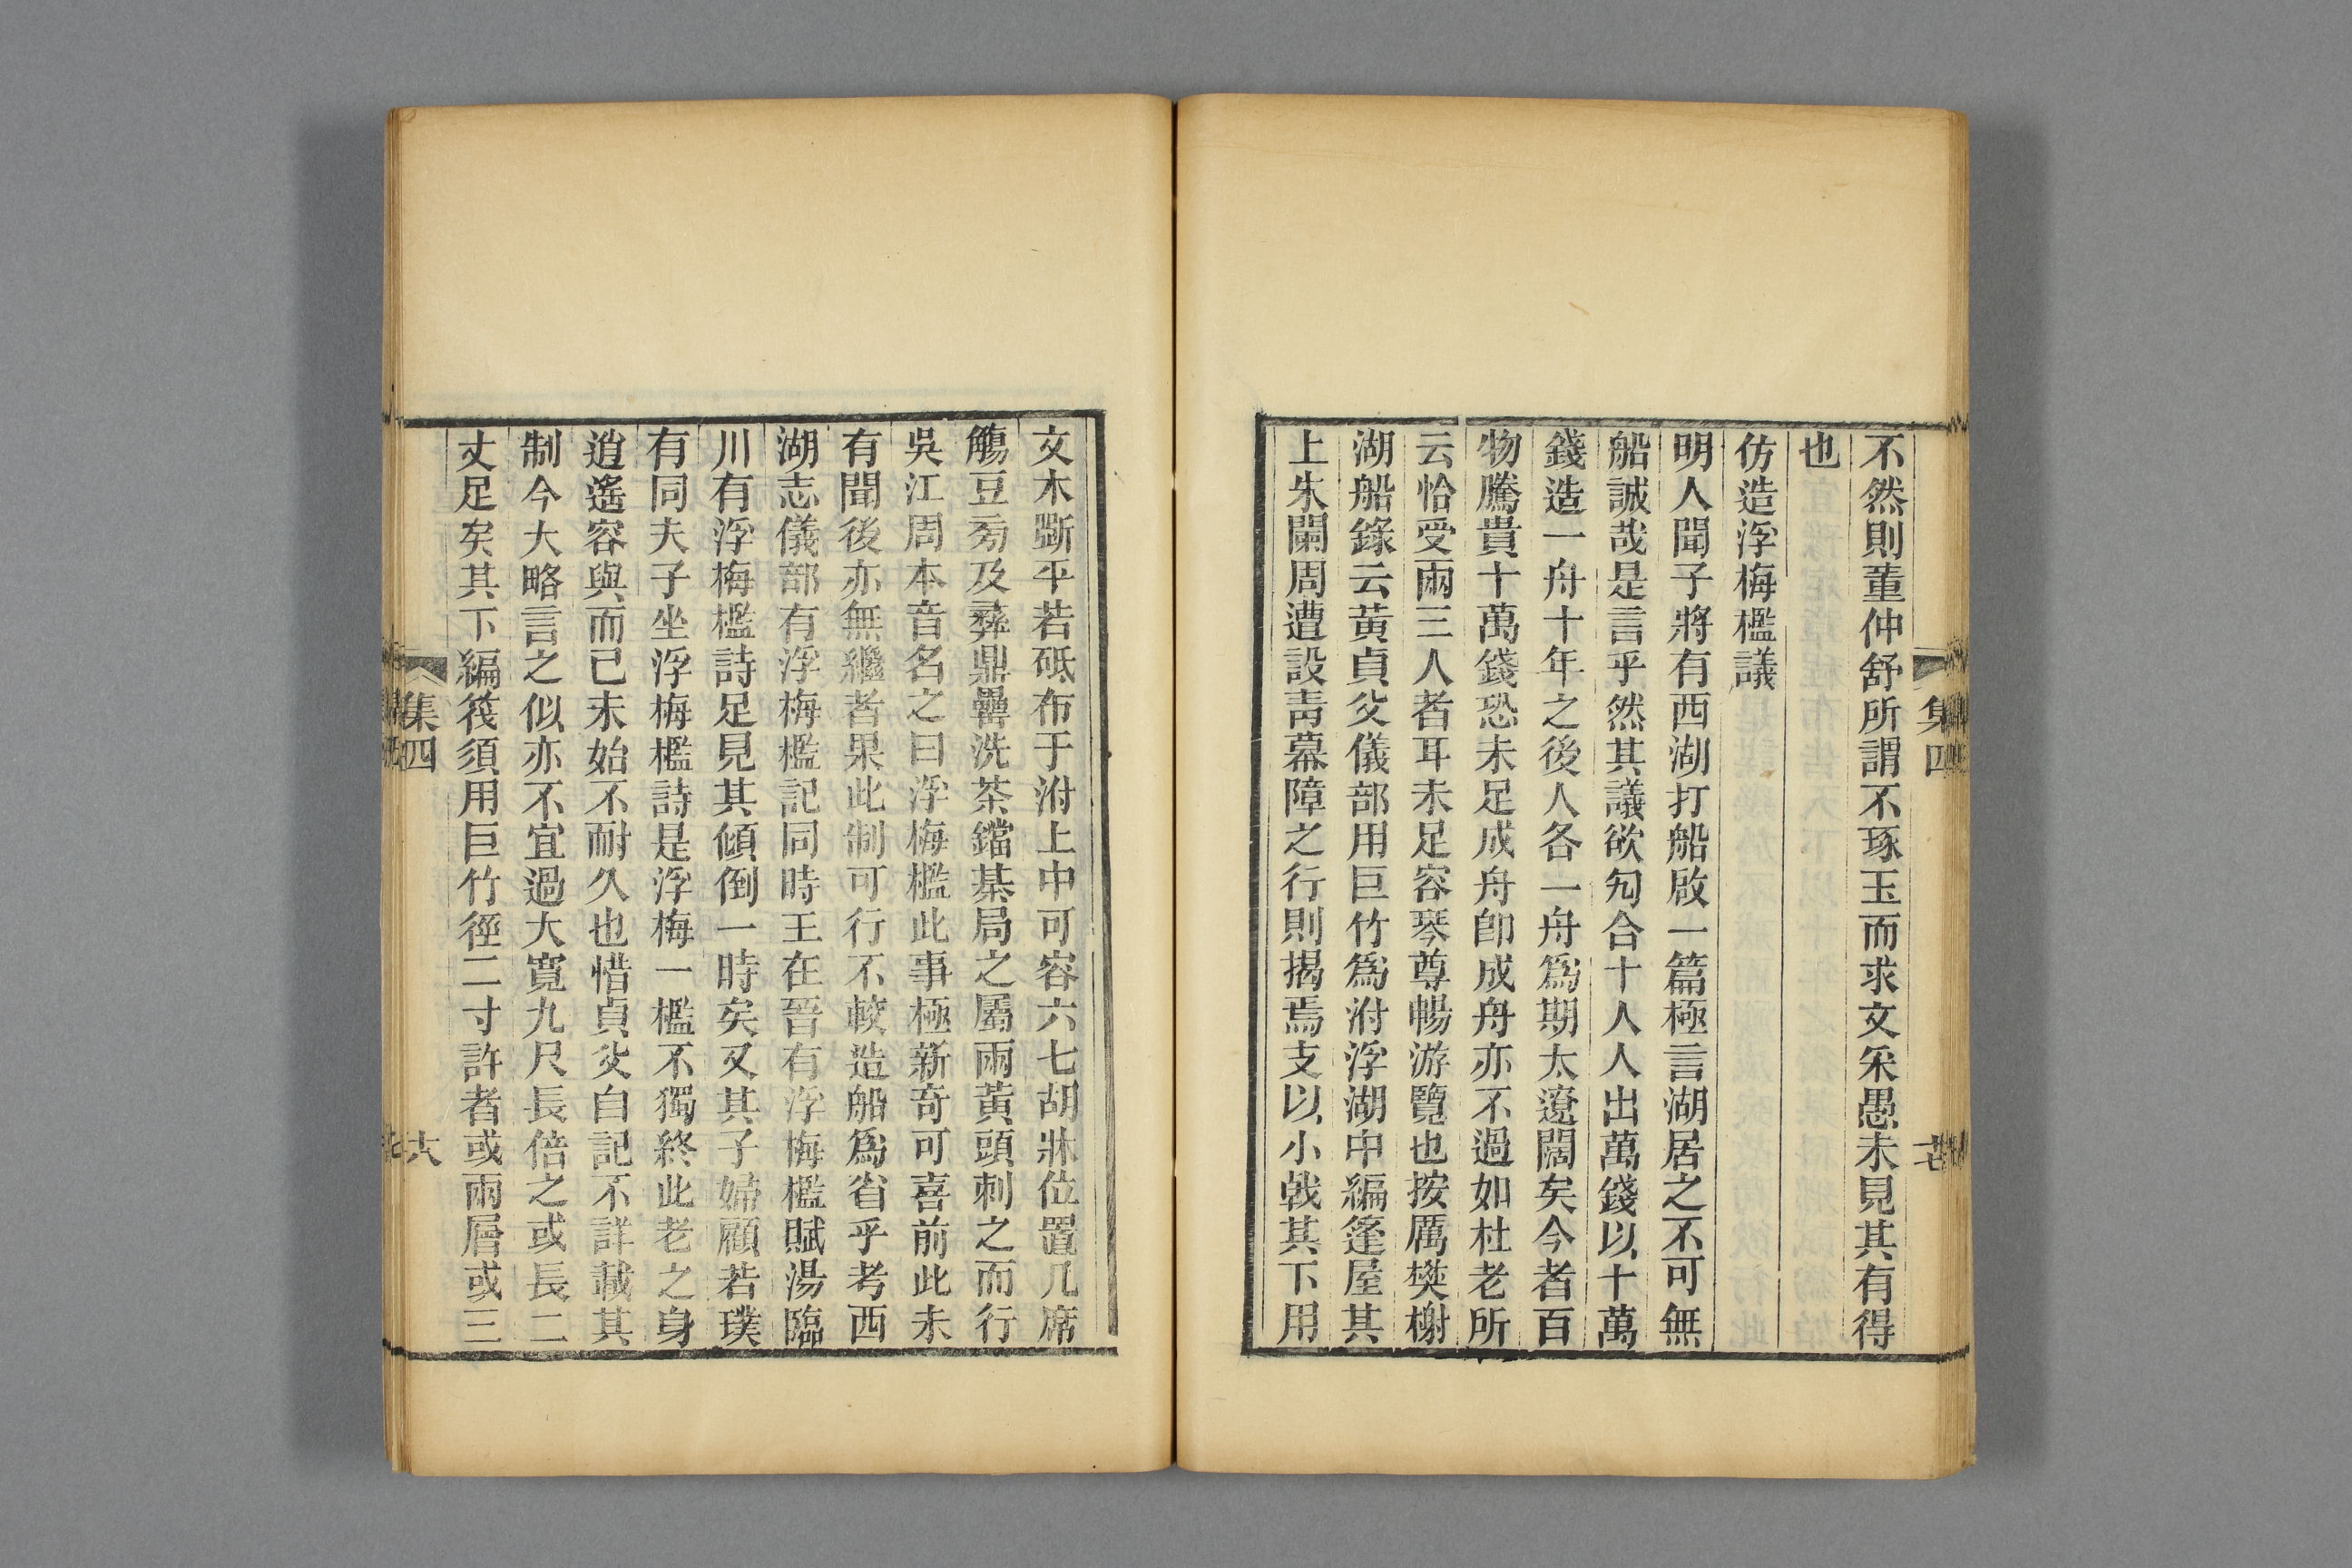 不然則董仲舒所謂不琢玉而求文采愚未見其有得
也
仿造浮梅檻議
明人聞子將有西湖打船啟一篇極言湖居之不可無
船誠哉是言乎然其議欲匃合十人人出萬錢以十萬
錢造一舟十年之後人各一舟爲期太遼闊矣今者百
物騰貴十萬錢恐未足成舟卽成舟亦不過如杜老所
云恰受兩三人者耳未足容琴尊暢游覽也按厲樊榭
湖船錄云黃貞父儀部用巨竹爲泭浮湖中編篷屋其
上朱闌周遭設青幕障之行則揭焉支以小戟其下用
文木斲平若砥布于泭上中可容六七胡牀位置几席
觴豆旁及彝鼎罍洗茶鐺棊局之屬兩黃頭刺之而行
吳江周本音名之曰浮梅檻此事極新奇可喜前此未
有聞後亦無繼者果此制可行不較造船爲省乎考西
湖志儀部有浮梅檻記同時王在晉有浮梅檻賦湯臨
川有浮梅檻詩足見其傾倒一時矣又其子婦顧若璞
有同夫子坐浮梅檻詩是浮梅一檻不獨終此老之身
逍遙容與而已未始不耐久也惜貞父自記不詳載其
制今大略言之似亦不宜過大寬九尺長倍之或長二
丈足矣其下編筏須用巨竹徑二寸許者或兩層或三
集四
六